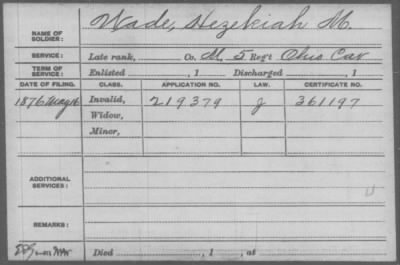 NAME OF SOLDIER: Wade, Hezekiah M.
SERVICE: Late rank, Co. M. 5 Reg't Ohio Cav
TERM OF SERVICE: Enlisted , 1 Discharged , 1
DATE OF FILING. CLASS. APPLICATION NO. LAW. CERTIFICATE NO.
1876 May 16 Invalid, 219379 J 361197
Widow,
Minor,
ADDITIONAL SERVICES:
REMARKS:
Died , 1 , at